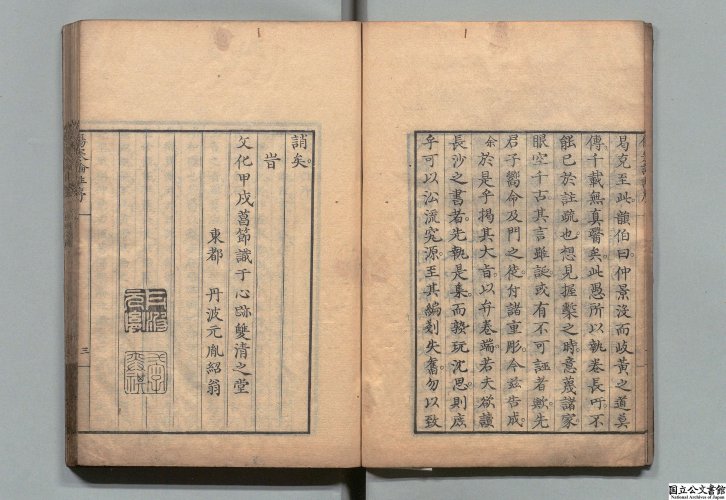 易克至此韻伯曰仲景沒而岐黃之道莫
傳千載無真醫矣此愚所以執卷長吁不
能已於註疏也想見握槧之時意蔑諸家
眼空千古其言雖誕或有不可誣者歟先
君子嚮命及門之徒付諸重彫今玆告成
余於是乎揭其大旨以弁卷端若夫欲讀
長沙之書者先執是集而熟玩沈思則庶
乎可以沿流究源至其編剗失舊勿以致
誚矣
旹
文化甲戌菖節識于心跡雙清之堂
東都 丹波元胤紹翁
三
国立公文書館
National Archives of Japan